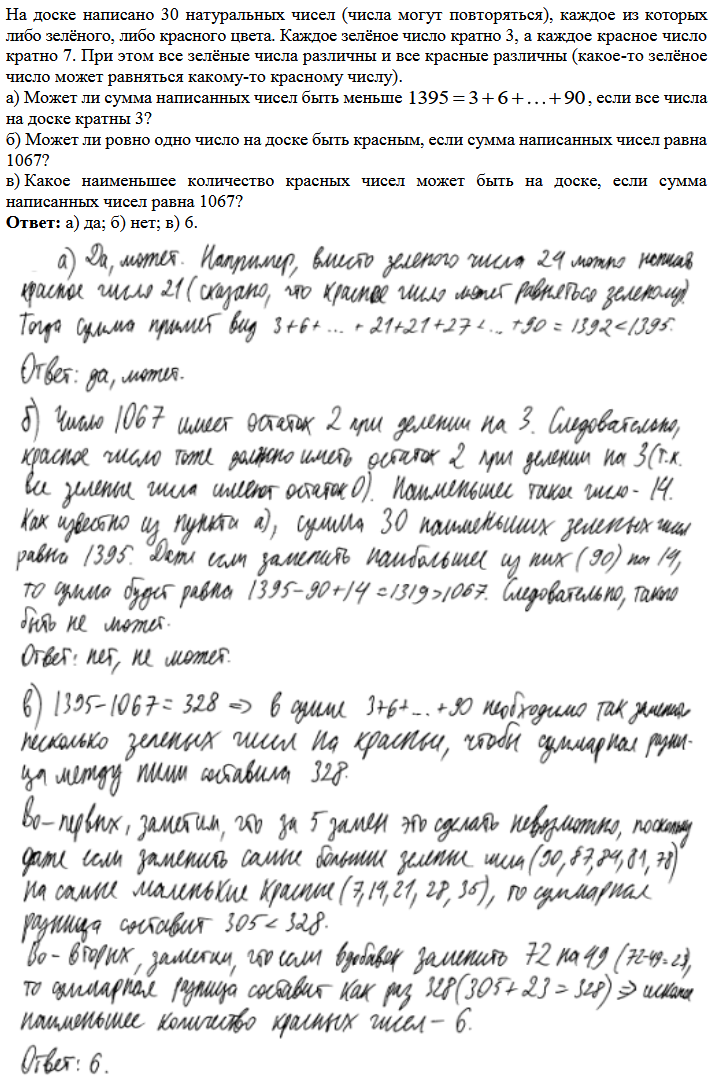 На доске написано 30 натуральных чисел (числа могут повторяться), каждое из которых
либо зелёного, либо красного цвета. Каждое зелёное число кратно 3, а каждое красное число
кратно 7. При этом все зелёные числа различны и все красные различны (какое-то зелёное
число может равняться какому-то красному числу).
а) Может ли сумма написанных чисел быть меньше 1395 = 3 + 6 + … + 90, если все числа
на доске кратны 3?
б) Может ли ровно одно число на доске быть красным, если сумма написанных чисел равна
1067?
в) Какое наименьшее количество красных чисел может быть на доске, если сумма
написанных чисел равна 1067?
Ответ: а) да; б) нет; в) 6.
а) Да, может. Например, вместо зеленого числа 24 можно написать
красное число 21 (сказано, что красное число может равняться зеленому).
Тогда сумма примет вид 3+6+ ... + 21+21+27+... +90 = 1392 < 1395.
Ответ: да, может.
б) Число 1067 имеет остаток 2 при делении на 3. Следовательно,
красное число тоже должно иметь остаток 2 при делении на 3 (т.к.
все зеленые числа имеют остаток 0). Наименьшее такое число - 14.
Как известно из пункта а), сумма 30 наименьших зеленых чисел
равна 1395. Даже если заменить наибольшее из них (90) на 14,
то сумма будет равна 1395-90+14=1319>1067. Следовательно, такого
быть не может.
Ответ: нет, не может.
в) 1395-1067=328 => в сумме 3+6+...+90 необходимо так заменить
несколько зеленых чисел на красные, чтобы суммарная разни-
ца между ними составила 328.
Во-первых, заметим, что за 5 замен это сделать невозможно, поскольку
даже если заменить самые большие зеленые числа (90, 87, 84, 81, 78)
на самые маленькие красные (7, 14, 21, 28, 35), то суммарная
разница составит 305 < 328.
Во-вторых, заметим, что если вдобавок заменить 72 на 49 (72-49=23),
то суммарная разница составит как раз 328 (305+23=328) => искомое
наименьшее количество красных чисел - 6.
Ответ: 6.